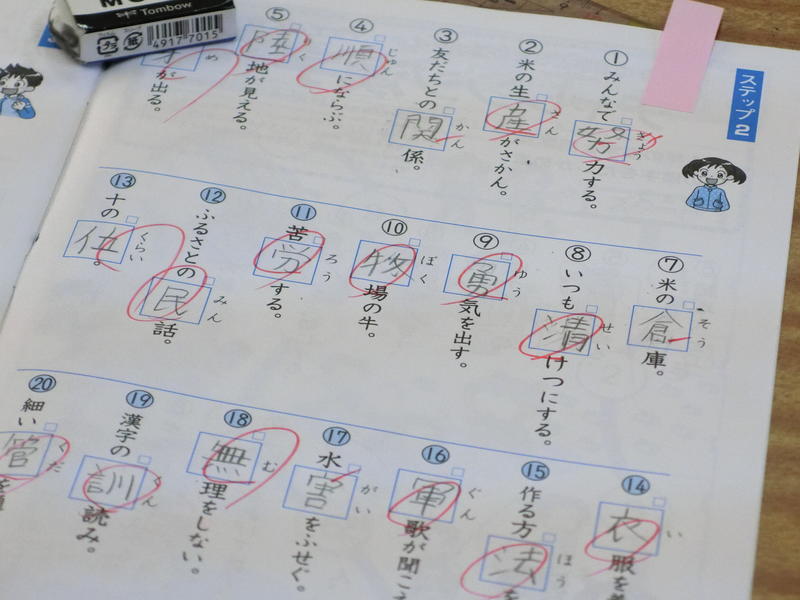 ステップ2
①みんなで協力する。
きょう
②米の生産がさかん。
さん
③友だちとの関係。
かん
④順にならぶ。
じゅん
⑤陸地が見える。
りく
が出る。
め
⑦米の倉庫。
そう
⑧いつも清けつにする。
せい
⑨勇気を出す。
ゆう
⑩牧場の牛。
ぼく
⑪苦労する。
ろう
⑫ふるさとの民話。
みん
⑬十の位。
くらい
⑭衣服を
い
⑮作る方法を
ほう
⑯軍歌が聞こえ
ぐん
⑰水害をふせぐ。
がい
⑱無理をしない。
む
⑲漢字の訓読み。
くん
⑳細い管を
くだ
Tombow
プラ 紙
4917 7015